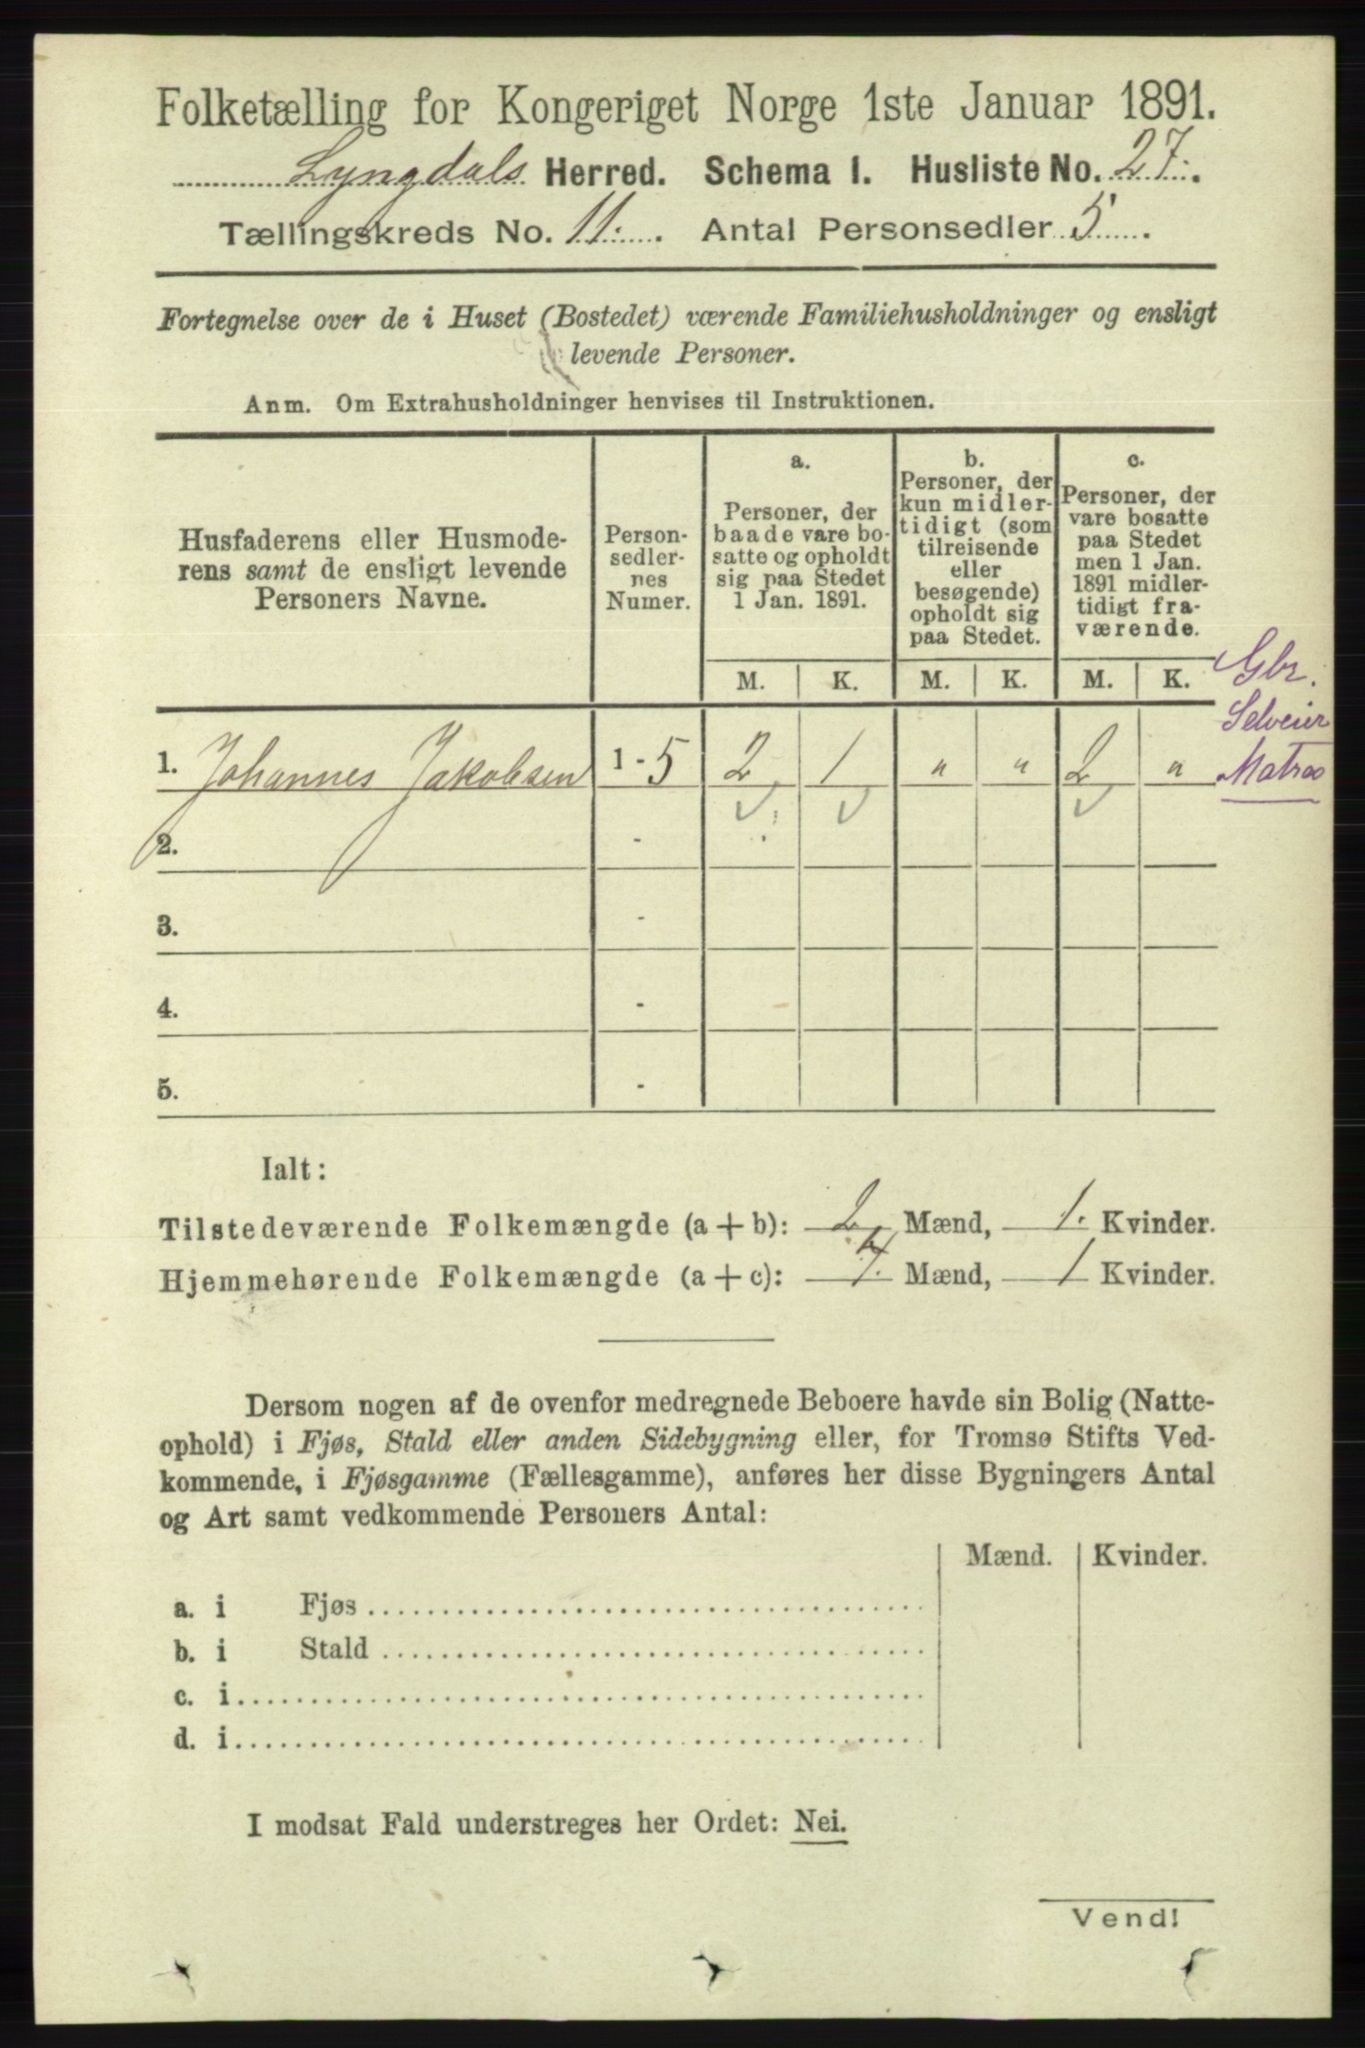 Folketælling for Kongeriget Norge 1ste Januar 1891.
Lyngdals Herred. Schema I. Husliste No. 27.
Tællingskreds No. 11. Antal Personsedler 5.
Fortegnelse over de i Huset (Bostedet) værende Familiehusholdninger og ensligt
levende Personer.
Anm. Om Extrahusholdninger henvises til Instruktionen.
Husfaderens eller Husmode-
rens samt de ensligt levende
Personers Navne.
Person-
sedler-
nes
Numer.
a.
Personer, der
baade vare bo-
satte og opholdt
sig paa Stedet
1 Jan. 1891.
b.
Personer, der
kun midler-
tidigt (som
tilreisende
eller
besøgende)
opholdt sig
paa Stedet.
c.
Personer, der
vare bosatte
paa Stedet
men 1 Jan.
1891 midler-
tidigt fra-
værende.
M. K. M. K. M. K.
Gbr.
Selveier
1. Johannes Jakobsen 1 - 5 2 1 " " 2 "
2. -
3. -
4. -
5. -
Ialt:
Tilstedeværende Folkemængde (a + b): 2 Mænd, 1. Kvinder.
Hjemmehørende Folkemængde (a + c): 4. Mænd, 1 Kvinder.
Dersom nogen af de ovenfor medregnede Beboere havde sin Bolig (Natte-
ophold) i Fjøs, Stald eller anden Sidebygning eller, for Tromsø Stifts Ved-
kommende, i Fjøsgamme (Fællesgamme), anføres her disse Bygningers Antal
og Art samt vedkommende Personers Antal:
Mænd. Kvinder.
a. i Fjøs
b. i Stald
c. i
d. i
I modsat Fald understreges her Ordet: Nei.
Vend!